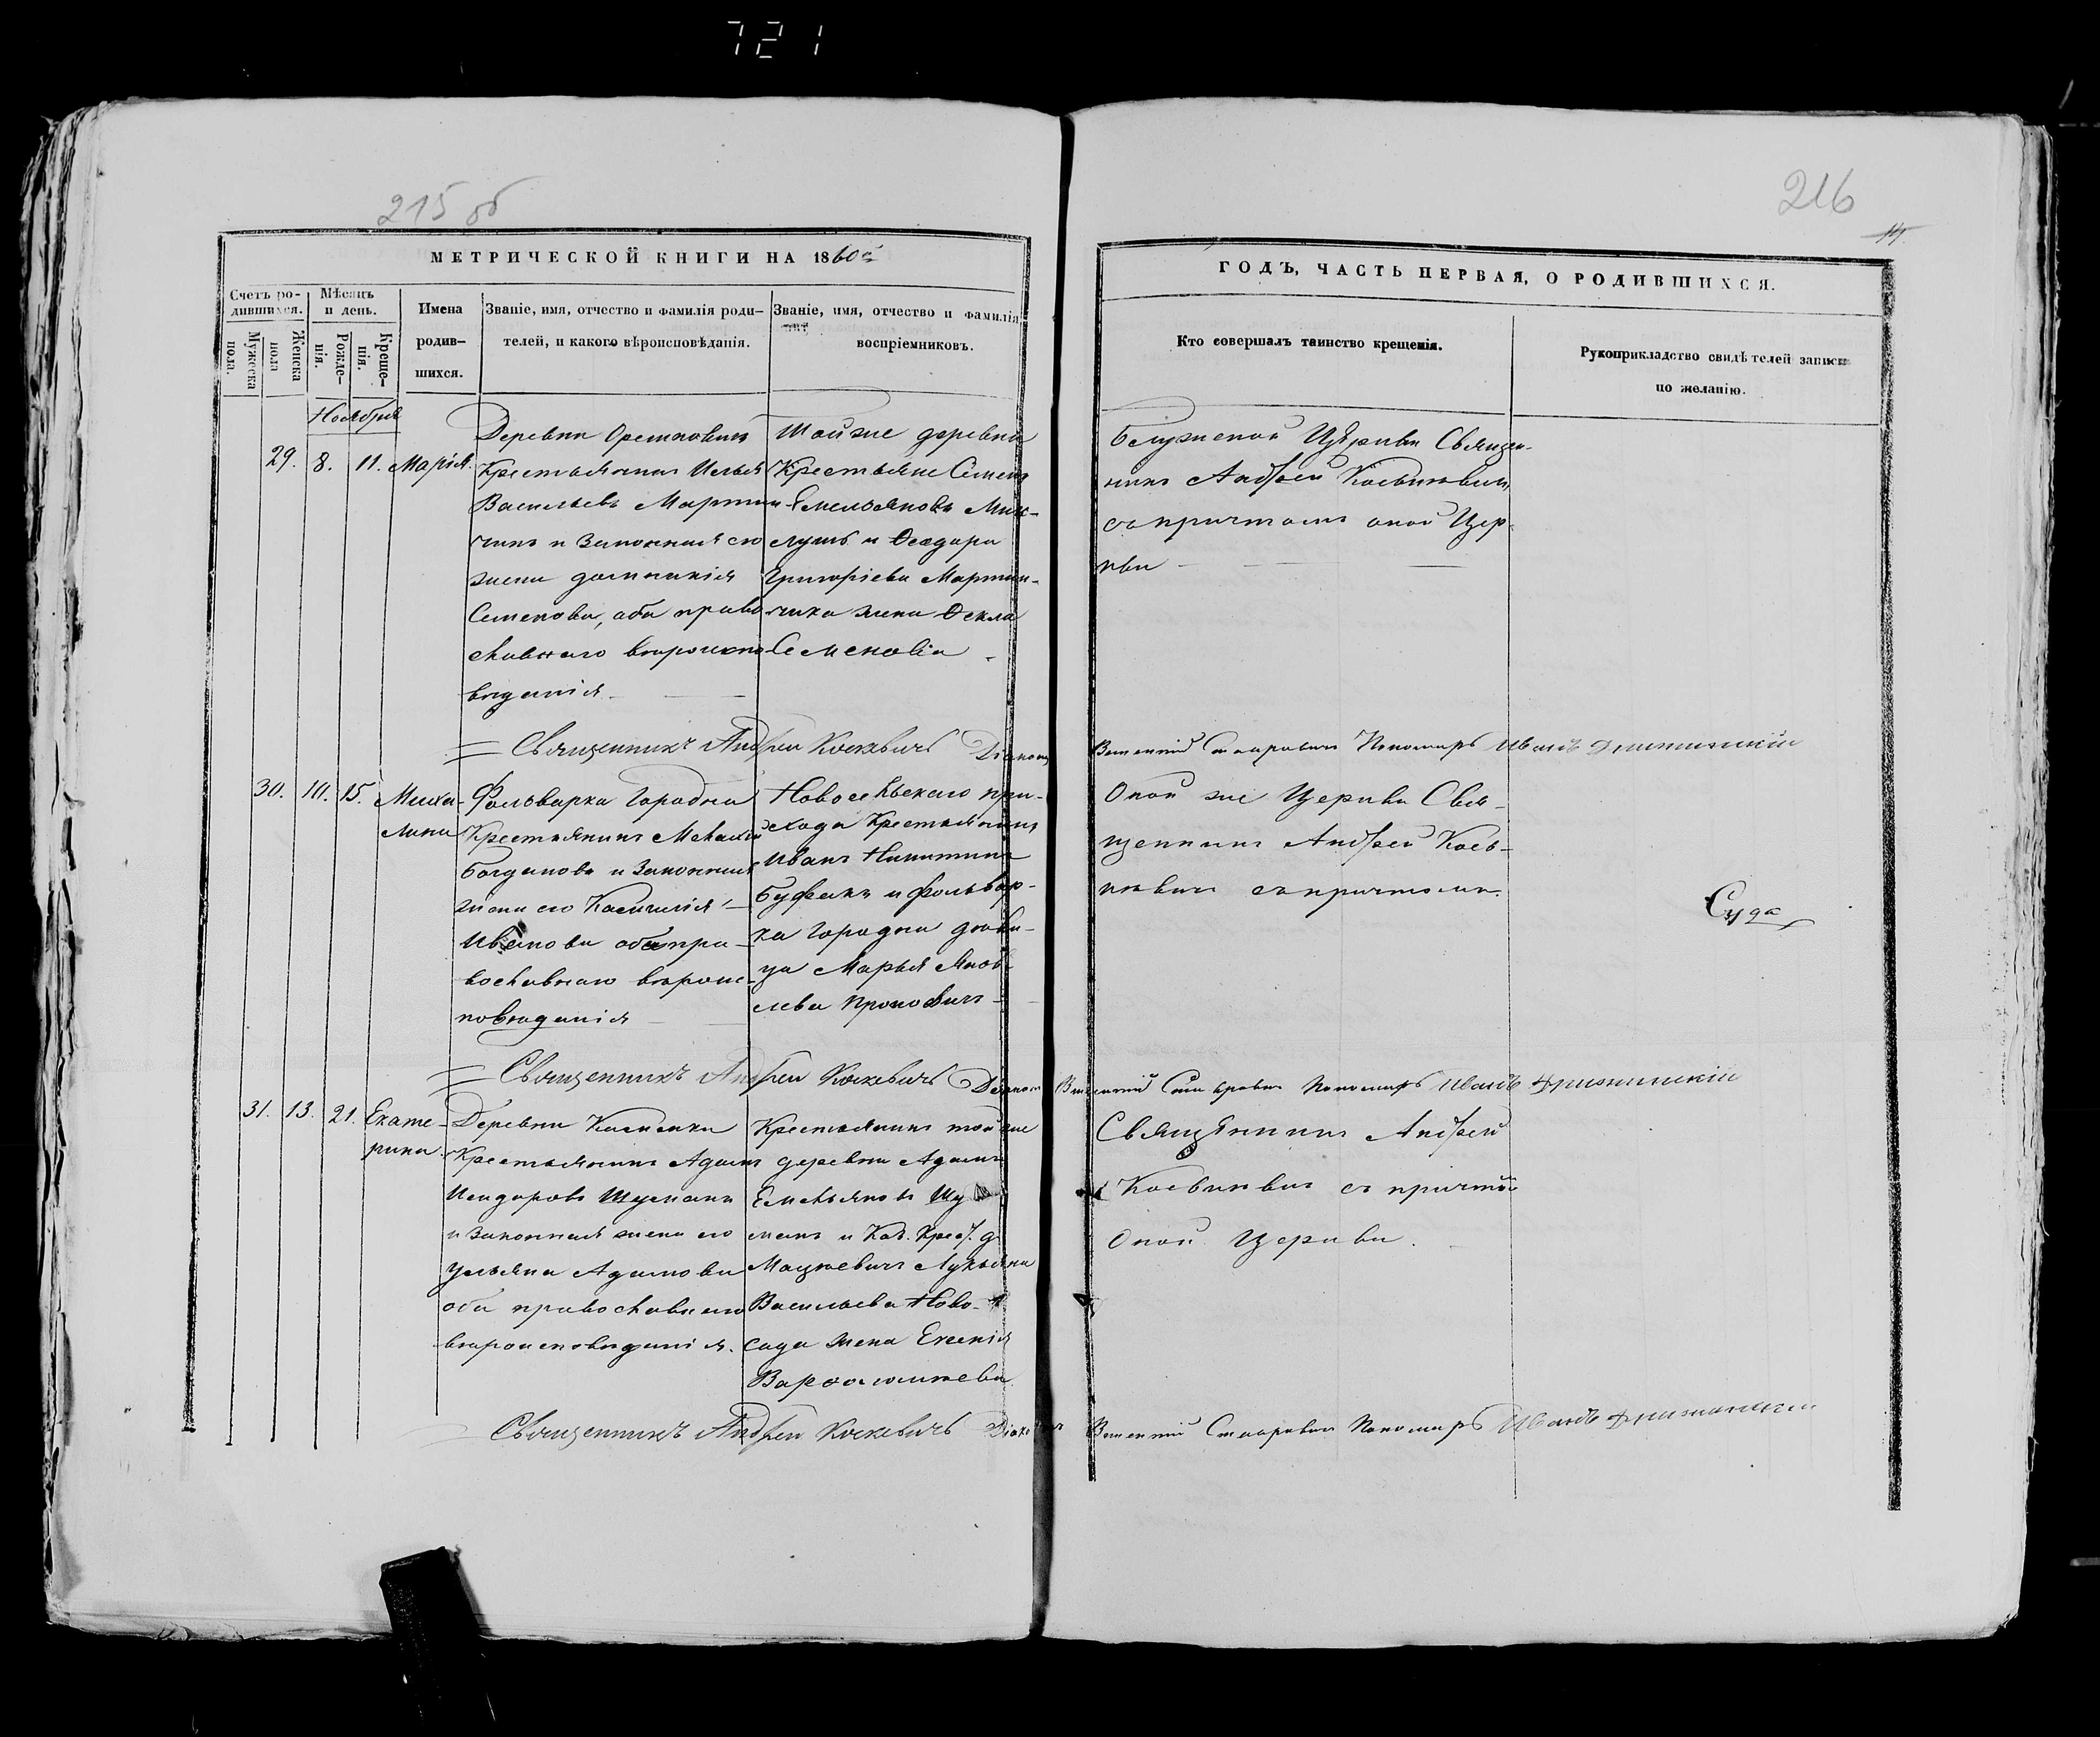 721
215 об
216
14
МЕТРИЧЕСКОЙ КНИГИ НА 1860й
ГОДЪ, ЧАСТЬ ПЕРВАЯ, О РОДИВШИХСЯ.
Счетъ ро-
дившихся.
Мужеска
пола.
Женска
пола
Мѣсяцъ
и день.
Рожде-
нія.
Креще-
нія.
Имена
родив-
шихся.
Званіе, имя, отчество и фамилія роди-
телей, и какого вѣроисповѣданія.
Званіе, имя, отчество и фамилія
воспріемниковъ.
Кто совершалъ таинство крещенія.
Рукоприкладство свидѣтелей записи
по желанію.
Ноября
29. 8. 11. Марія.
Деревни
Крестьянинъ Илья
Васильевъ Мартин-
чикъ и Законная его
жена домникія
Семенова, оба право
славнаго вѣроиспо
вѣданія
Тойже деревни
Крестьяне Семенъ
Емельяновъ Мик-
лушъ и Ѳеодора
Григоріева Мартин-
чика жена Ѳекла
Семенова
Церкви Священ-
никъ Андрей
съ причтомъ оной Цер-
кви
Священникъ Андрей Коскевичъ Діаконъ
Пономарь Иванъ
30. 10. 15. Миха-
лина
Фольварка Городна
Крестьянинъ
Богдановъ и Законная
жена его
Иванова оба пра-
вославнаго вѣроис-
повѣданія
Новосельскаго при-
хода Крестьянинъ
Иванъ Никитинъ
и фольвар-
ка Городна дѣви-
ца Марья Яков-
лева Прокопович
Оной же Церкви Свя-
щенникъ Андрей Косъ-
кевич съ причтомъ.
Суда
Священникъ Андрей Коскевичъ
Пономарь Иванъ
31. 13. 21. Екате-
рина
Деревни
Крестьянинъ Адамъ
и законная жена его
Ульяна Адамова
оба православнаго
вѣроисповѣданія.
Крестьянинъ той же
деревни Адамъ
Емельяновъ Шу
манъ и Каз. Крес. д.
Мацкевичъ Лукьяна
Васильева Ново-
сада жена
Варѳоломеева
Священникъ Андрей
съ причтом
Оной Церкви.
Священникъ Андрей Коскевичъ
Пономарь Иванъ